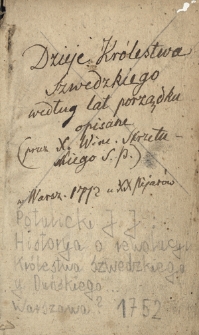 Dzieje Królestwa
Szwedzkiego
według lat porządku
opisane
(przez X. Winc. Skrzetu-
skiego S. P.)
w Warsz. 1772 u XX Pijarów
Potulicki J. J.:
Historya o rewolucji
Królestwa Szwedzkiego
y Duńskiego.
Warszawa? 1752